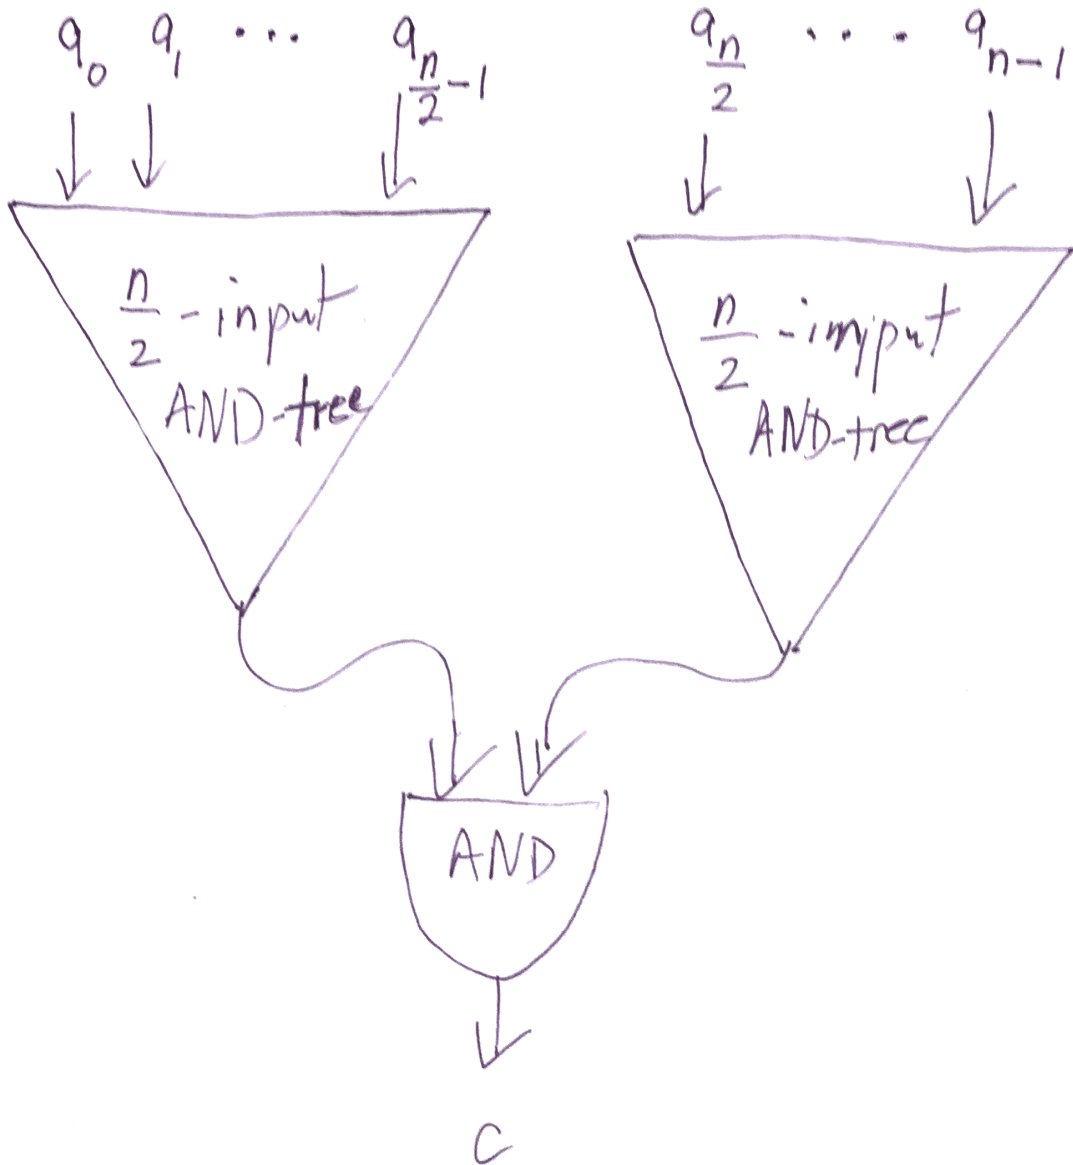 a₀ a₁ ... a_{n/2-1} a_{n/2} .... a_{n-1}
n/2 -input
AND-tree
n/2 -imput
AND-tree
AND
C